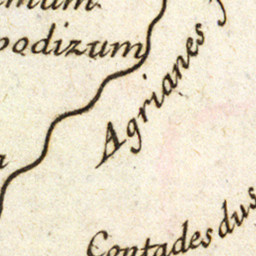 podizum
Agrianes
Contadesdus